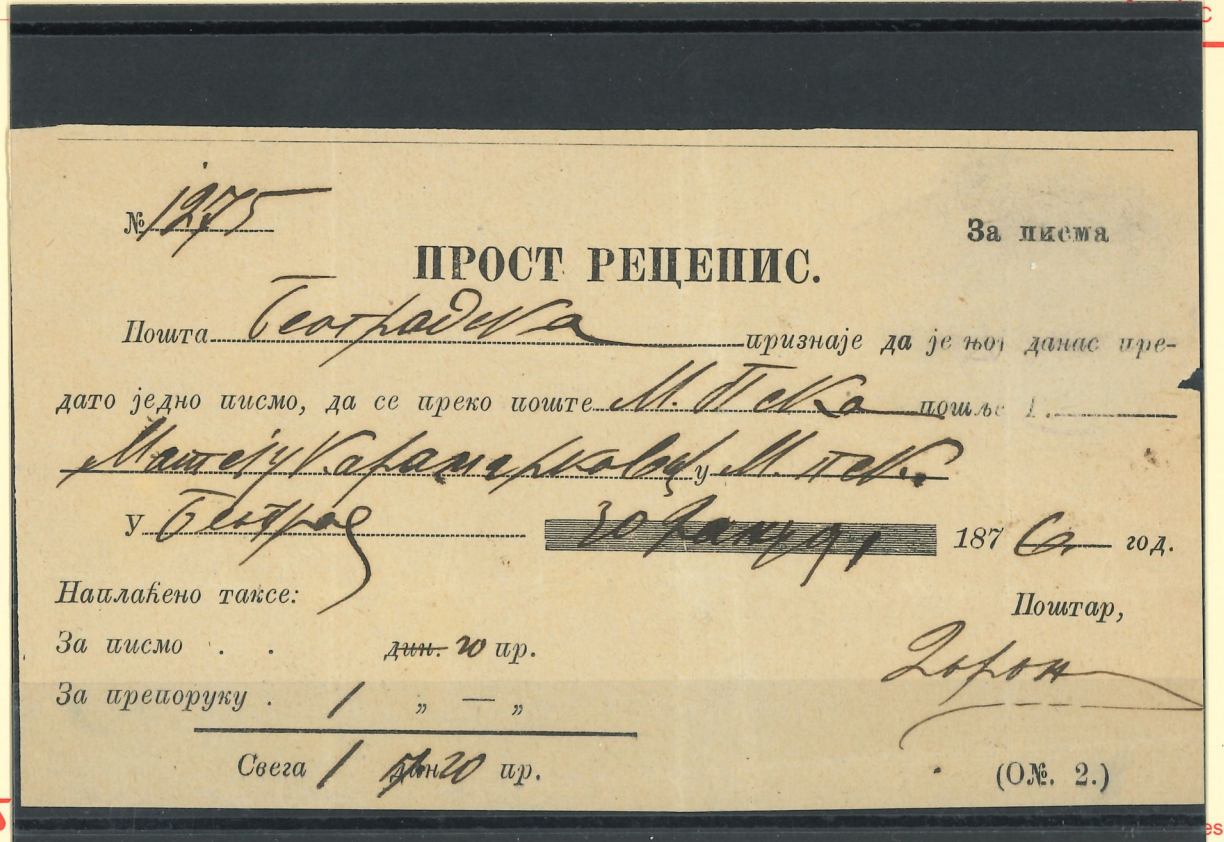 № 1275
За писма
ПРОСТ РЕЦЕПИС.
Пошта Београдска признаје да је њој данас пре-
дато једно писмо, да се преко поште М. Пека пошље Г.
Матеју Карамарковцу у М. Пек.
У Београд 30 Јануар 1876 год.
Наплаћено таксе:
Поштар,
За писмо . . дин. 20 пр.
За препоруку . 1 „ — „
Свега 1 дин 20 пр.
(О№. 2.)